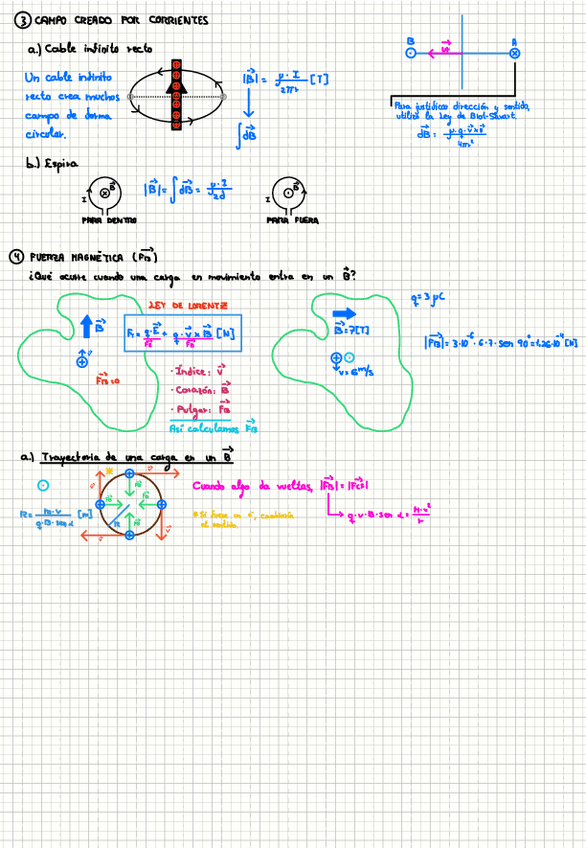 ③ CAMPO CREADO POR CORRIENTES
a.) Cable infinito recto
Un cable infinito
recto crea muchos
campo de forma
circular.
|B⃗| = μ·I / 2πr [T]
∫dB⃗
B
A
Para justificar dirección y sentido,
utilizo la Ley de Biot-Savart.
b.) Espira
I
B⃗
PARA DENTRO
|B⃗| = ∫dB⃗ = μ·I / 2a
I
B⃗
PARA FUERA
④ FUERZA MAGNÉTICA (F⃗B)
¿Qué ocurre cuando una carga en movimiento entra en un B⃗?
LEY DE LORENTZ
B⃗
v⃗
F⃗B=0
· Índice: v⃗
· Corazón: B⃗
· Pulgar: F⃗B
Así calculamos F⃗B
B⃗=7[T]
v=6m/s
q=3 μC
|F⃗B|=3·10⁻⁶·6·7·sen 90°=1.26·10⁻⁴ [N]
a.) Trayectoria de una carga en un B⃗
R= m·v / q·B·sen α [m]
R
Cuando algo da vueltas, |F⃗B|=|F⃗c|
q·v·B·sen α = m·v² / r